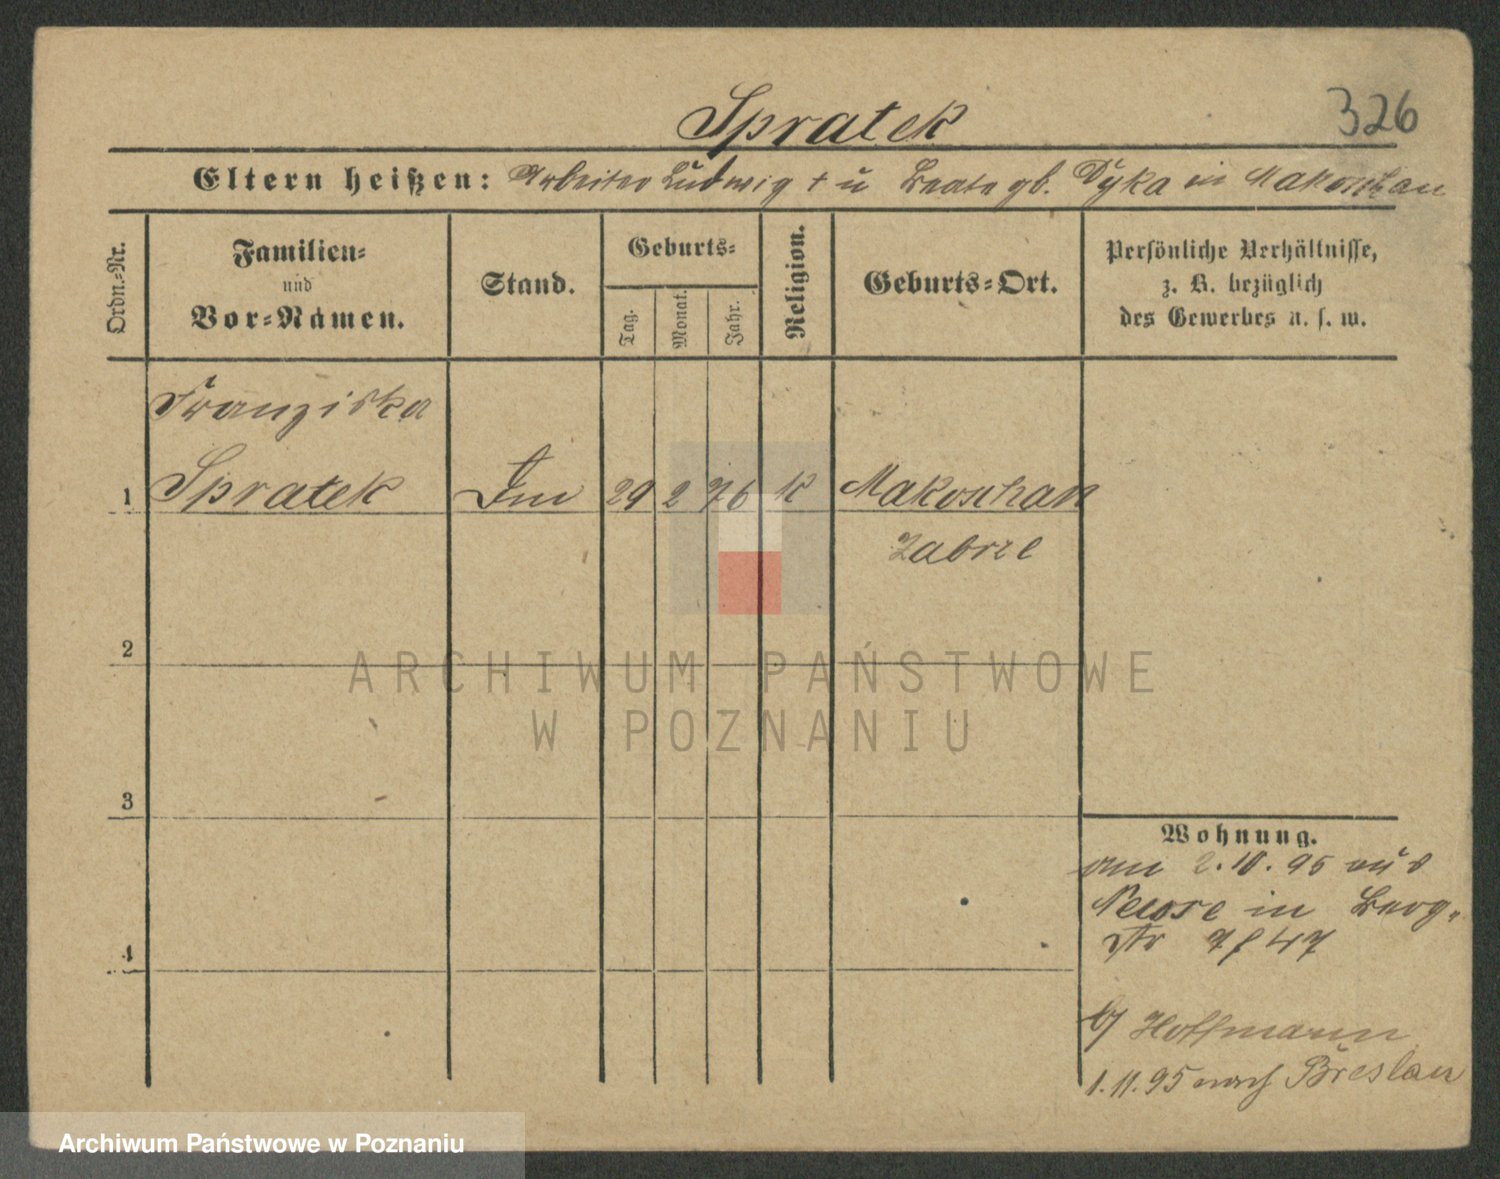 326
Spratek
Eltern heißen: Arbeiter Ludwig † u Beate gb. Dyka in Makoschau
Ordn.-Nr.
Familien-
und
Vor-Namen.
Stand.
Geburts-
Tag.
Monat.
Jahr.
Religion.
Geburts-Ort.
Persönliche Verhältnisse,
z. B. bezüglich
des Gewerbes u. s. w.
Franziska
1 Spratek 29 2 76 K Makoschau
Zabrze
2
3
4
Wohnung.
am 2.10.95 aus
in Berg-
Str 47
b/ Hoffmann
1.11.95 nach Breslau
ARCHIWUM PAŃSTWOWE
W POZNANIU
Archiwum Państwowe w Poznaniu